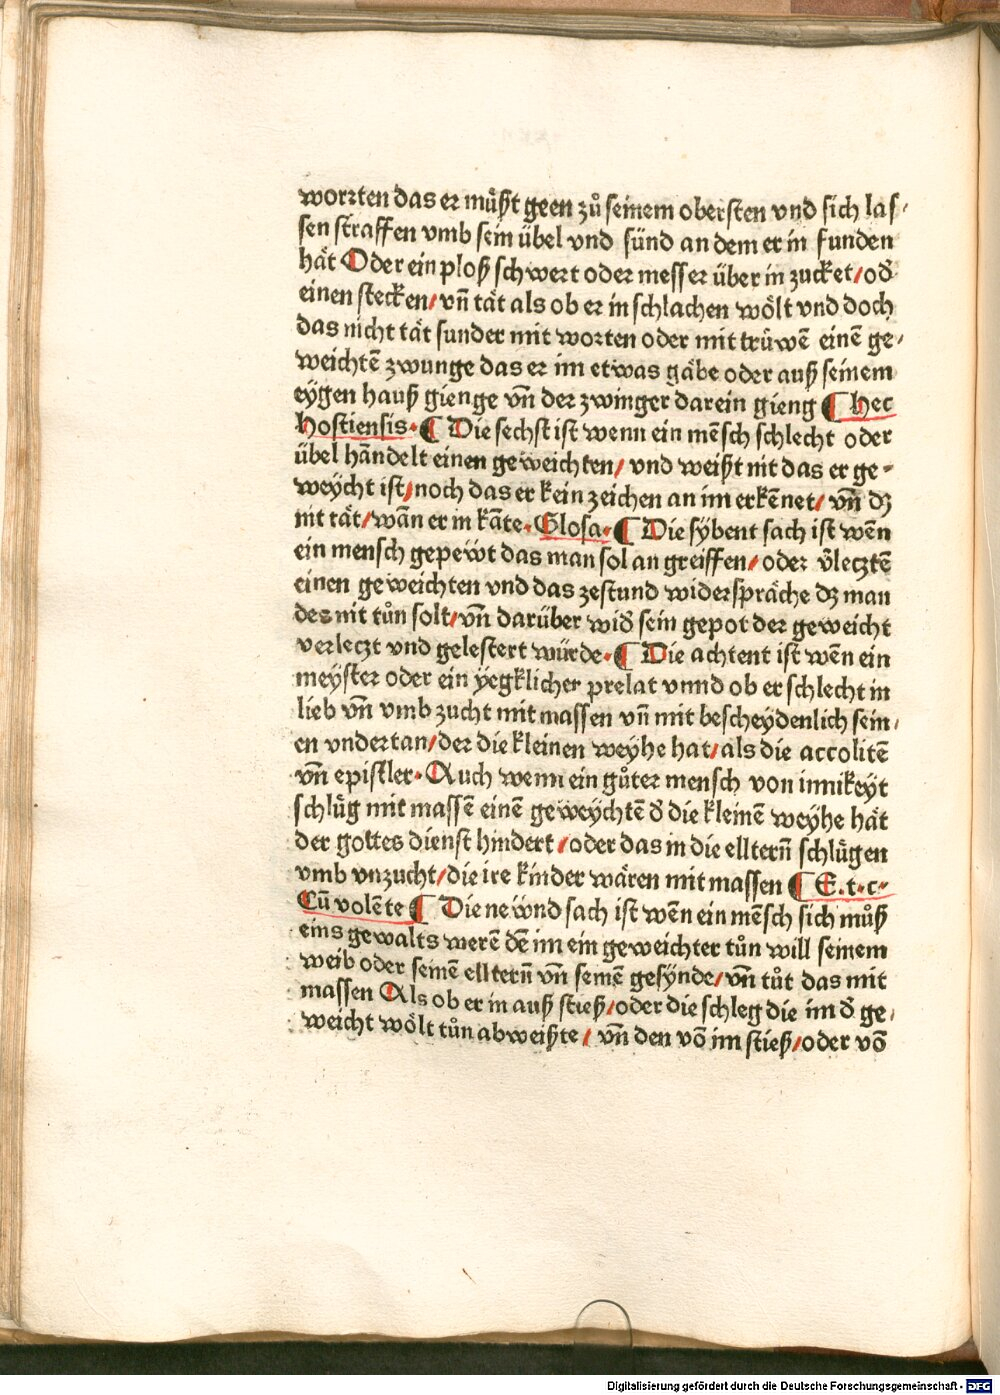 worꝛten das eꝛ muͤßt geen zuͦ seinem obersten vnd sich las⸗
sen straffen vmb sein uͤbel vnd suͤnd an dem er in funden
haͤt Oder ein ploß schwert oder messer uͤber in zucket/od̕
einen stecken/vn̄ taͤt als ob er in schlachen woͤlt vnd doch
das nicht taͤt sunder mit woꝛten oder mit truͤwē einē ge⸗
weichtē zwunge das er im etwas gaͤbe oder auß seinem
eygen hauß gienge vn̄ deꝛ zwinger darein gieng ¶ hec
hostiensis. ¶ Die sechst ist wenn ein mēsch schlecht oder
uͤbel hāndelt einen geweichten/ vnd weißt nit das er ge⸗
weycht ist/noch das er kein zeichen an im erkēnet/ vn̄ dꝫ
nit taͤt/wān er in kāte. Glosa. ¶ Die sybent sach ist wēn
ein mensch gepewt das man sol an greiffen/oder v̄leczte
einen geweichten vnd das zestund widerspraͤche dꝫ man
des nit tuͦn solt/vn̄ daruͤber wid̕ sein gepot der geweicht
verleczt vnd gelestert wuͤrde. ¶ Die achtent ist wēn ein
meysteꝛ oder ein yegklicher prelat vnnd ob er schlecht in
lieb vn̄ vmb zucht mit massen vn̄ mit bescheydenlich sein⸗
en vndertan/der die kleinen weyhe hat/als die accolitē
vn̄ epistler. Auch wenn ein guͦter mensch von innikeyt
schluͤg mit massē einē geweychtē d̕ die kleinē weyhe haͤt
der gottes dienst hindert/oder das in die elltern̄ schluͤgen
vmb vnzucht/die ire kinder waͤren mit massen ¶ E.t.c.
Cū volēte ¶ Die newnd sach ist wēn ein mēsch sich muͦß
eins gewalts werē dē im ein geweichter tuͦn will seinem
weib oder seinē elltern̄ vn̄ seinē gesynde/vn̄ tuͦt das mit
massen Als ob er in auß stieß/oder die schleg die im d̕ ge⸗
weicht woͤlt tuͦn abweißte/ vn̄ den vō im stieß/oder vō
Digitalisierung gefördert durch die Deutsche Forschungsgemeinschaft - DFG